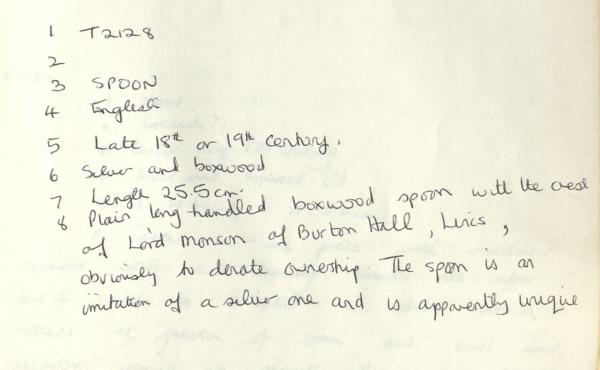 1 T2128
2
3 SPOON
4 English
5 Late 18th or 19th century.
6 Silver and boxwood
7 Length 25.5cm.
8 Plain long handled boxwood spoon with the crest
of Lord Monson of Burton Hall, Lincs,
obviously to denote ownership. The spoon is an
imitation of a silver one and is apparently unique